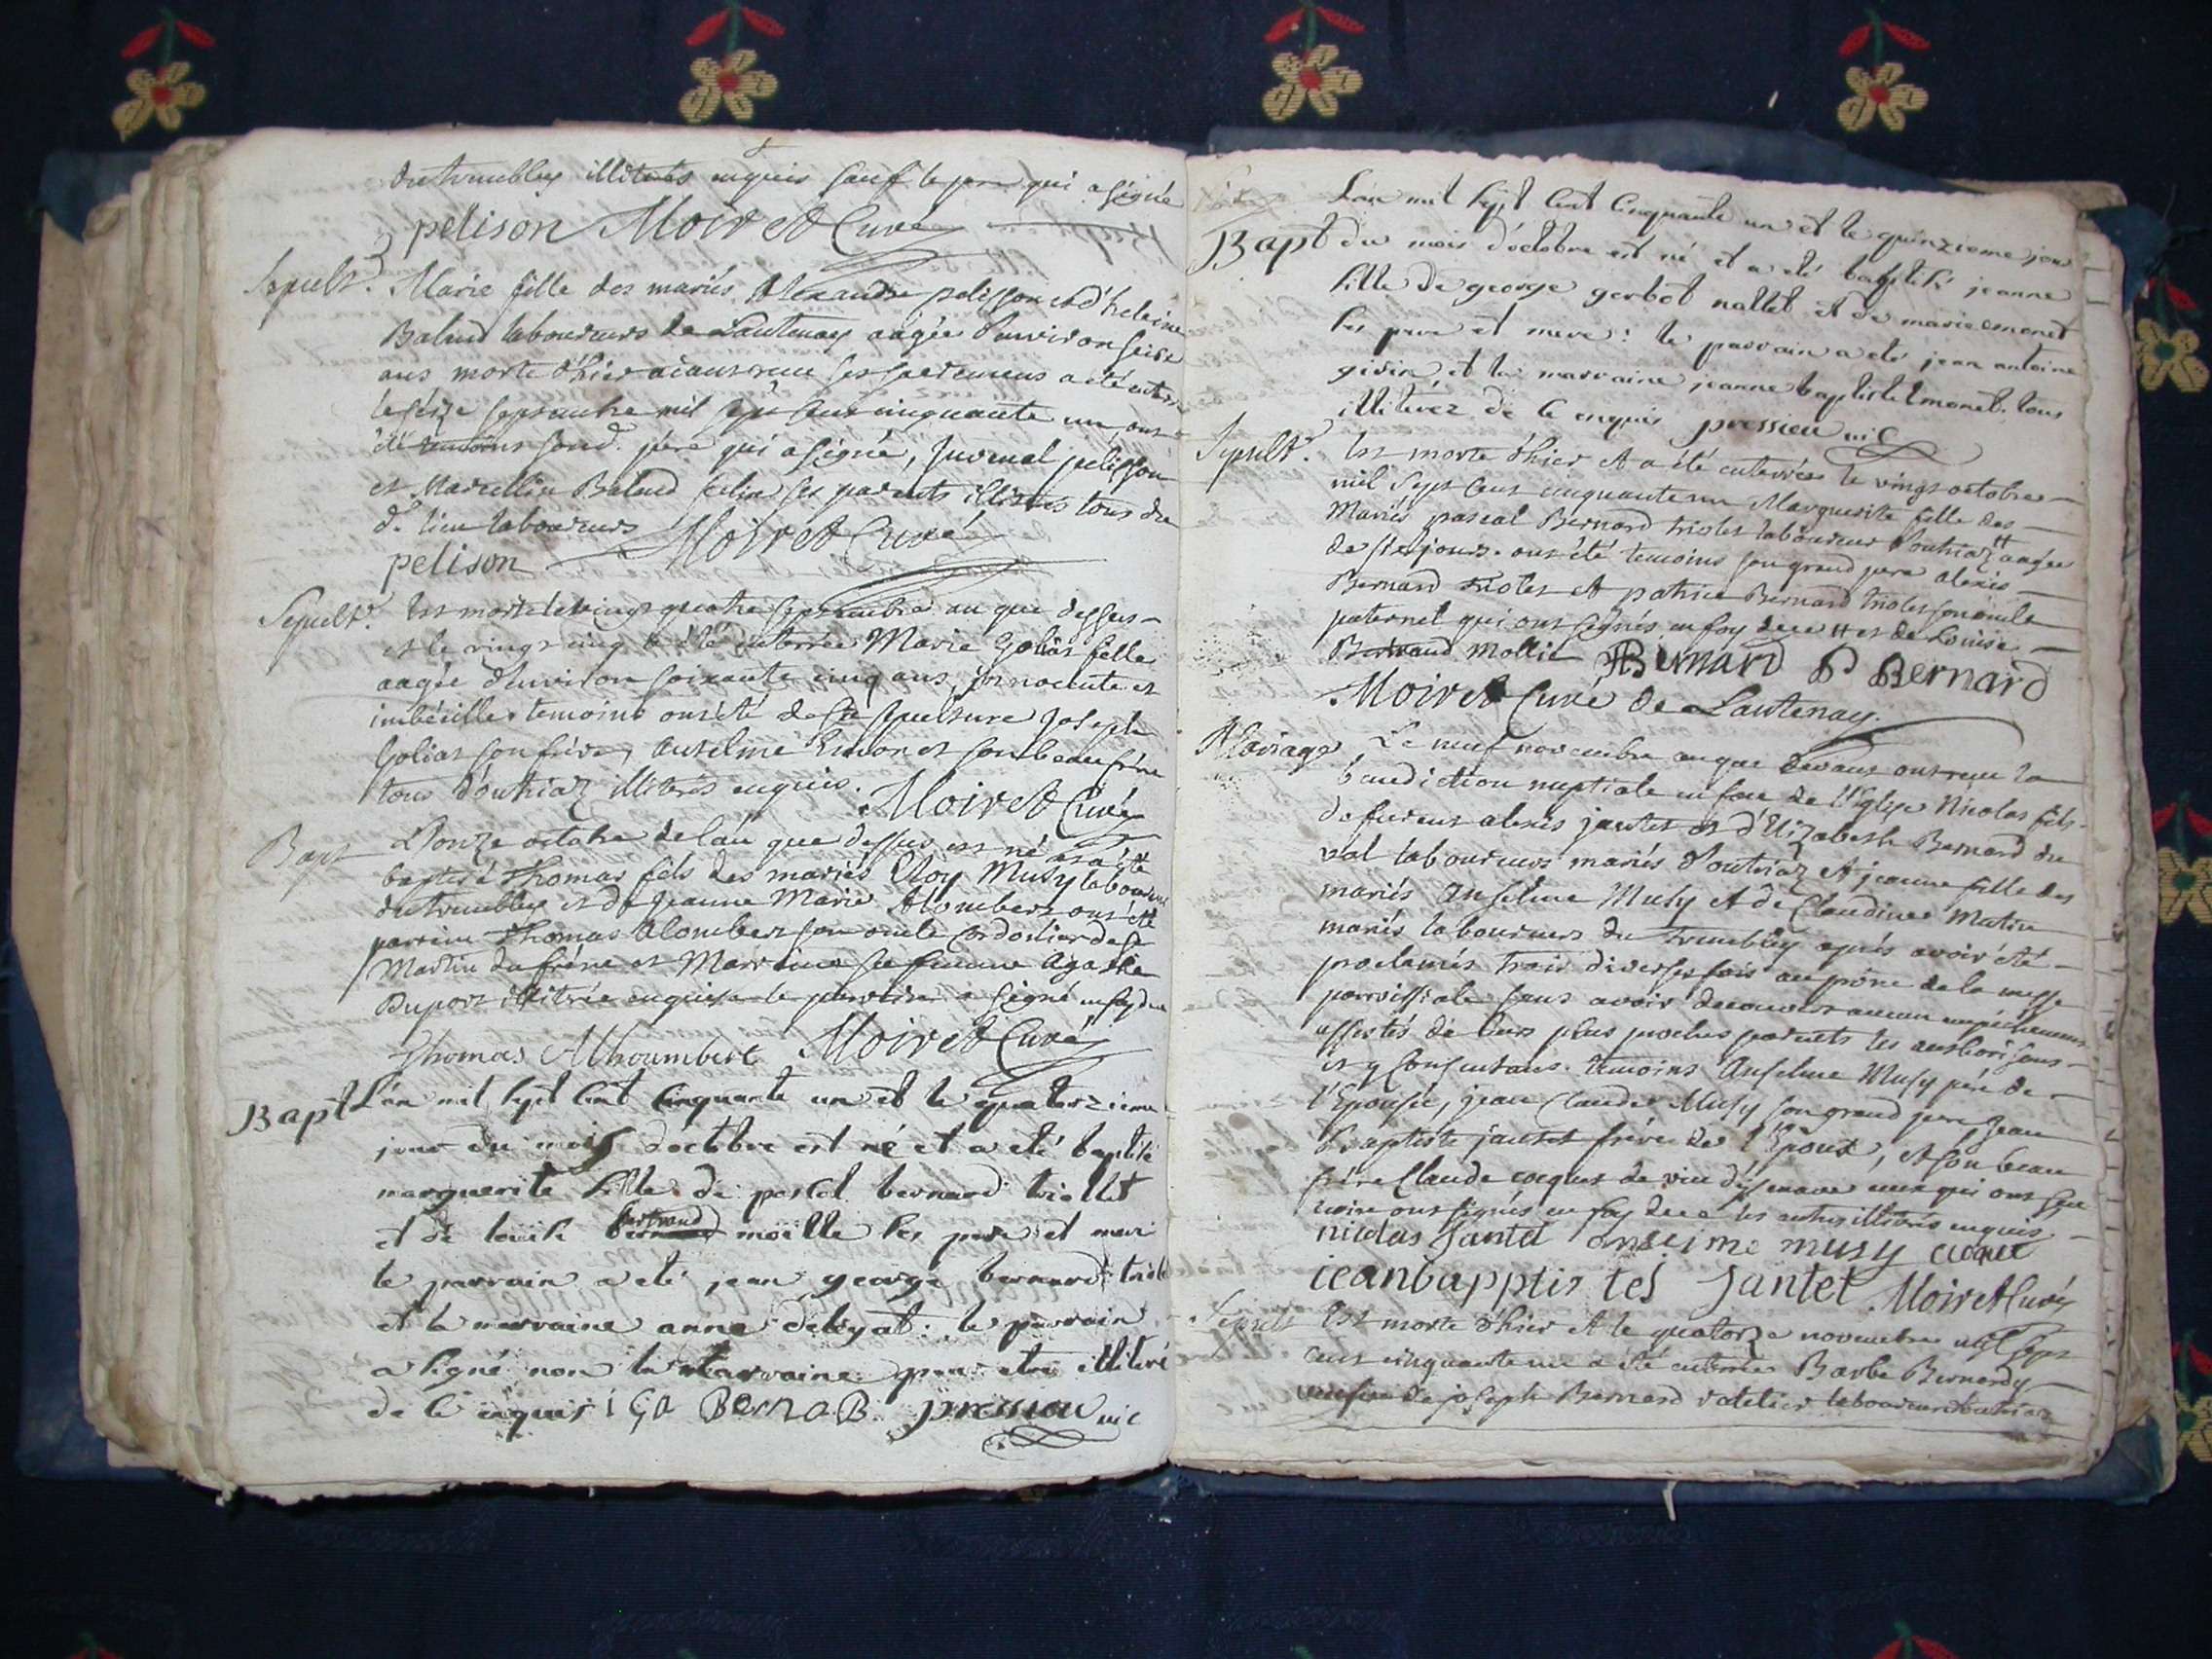 du trembley illiterés enquis sauf le pere qui a signé
pelison Moiret Curé
Sepult. Marie fille des mariés Alexandre pelisson et d'heleine
Balud laboureurs de Lantenay aagée d'environ seise
ans morte d'hier aiant receu ses sacremens a été enterrée
le seize septembre mil sept cens cinquante un, ont
été temoins son d. père qui a signé, Juvenal pelisson
et Marcellin Balud ses parents illiterés tous du
d. lieu laboureurs Moiret Curé
pelison
Sepult. Est morte le vingt quatre septembre an que dessus
et le vingt cinq a été enterrée Marie Golias fille
aagée d'environ soixante cinq ans, innocente et
imbécille. temoins ont été de sa sepulture Joseph
Golias son frère, Anselme Emonet son beau frère
tous d'outriaz illiterés enquis. Moiret Curé
Bapt L'onze octobre de l'an que dessus est né et a été
baptisé Thomas fils des mariés Eloy Musy laboureur
du trembley et de Jeanne Marie Alombert ont été
parrain Thomas Alombert son oncle cordonier de St
Martin du frêne et Marraine sa femme Agathe
Duport illitérée enquise le parrain a signé en foy de ce
Thomas Alhoumbert Moiret Curé
Bapt L'an mil sept cent cinquante un et le quatorzieme
jour du mois doctobre est né et a eté baptisé
marguerite fille de pascal bernard triollet
et de louise bertrand moille ses pere et mere
le parrain a eté jean george bernard triolet
et la marraine anne delegat: le parrain
a signé non la marraine pour etre illiteré
de ce enquis i Ga BernaB. pressieu vic
L'an mil sept cent cinquante un et le quinzieme jour
Bapt du mois d'octobre est né et a eté baptisé jeanne
fille de george gerbot nallet et de marie emonet
ses pere et mere: le parrain a eté jean antoine
girin et la marraine jeanne baptiste Emonet. tous
illiterez de ce enquis pressieu vic
Sepult. Est morte d'hier et a été enterrée le vingt octobre
mil sept cens cinquante un Marguerite fille des
Mariés pascal Bernard triolet laboureur d'outriaz aagée
de sept jours. ont été temoins son grand pere alexis
Bernard triolet et patrice Bernard triolet son oncle
paternel qui ont signés en foy de ce et de Louise
Bertrand Mollie ABernard P Bernard
Moiret Curé de Lantenay.
Mariage Le neuf novembre an que devant ont receu la
benediction nuptiale en face de l'Eglise Nicolas fils
de furent alexis jantet et d'Elizabeth Bernard du
val laboureurs mariés d'outriaz et jeanne fille des
mariés Anselme Musy et de Claudine Matin
mariés laboureurs du trembley après avoir été
proclamés trois diverses fois au prône de la messe
parroissiale sans avoir decouvert aucun empêchement
assistés de leurs plus proches parents les authorisans
et y consentans. temoins Anselme Musy père de
l'Epouse, jean Claude Musy son grand pere Jean
Baptiste jantet frère de l'Epoux, et son beau
frère Claude cocquet de vieu d'yzenave ceux qui ont sçu
ecrire ont signés en foy de ce les autres illiterés enquis
nicolas Jantet anseime musy
ieanbapptis tes Jantet Moiret Curé
Sepult Est morte d'hier et le quatorze novembre mil sept
cens cinquante un a été enterrée Barbe Bernardy
veufve de joseph Bernard ratelier laboureur d'outriaz